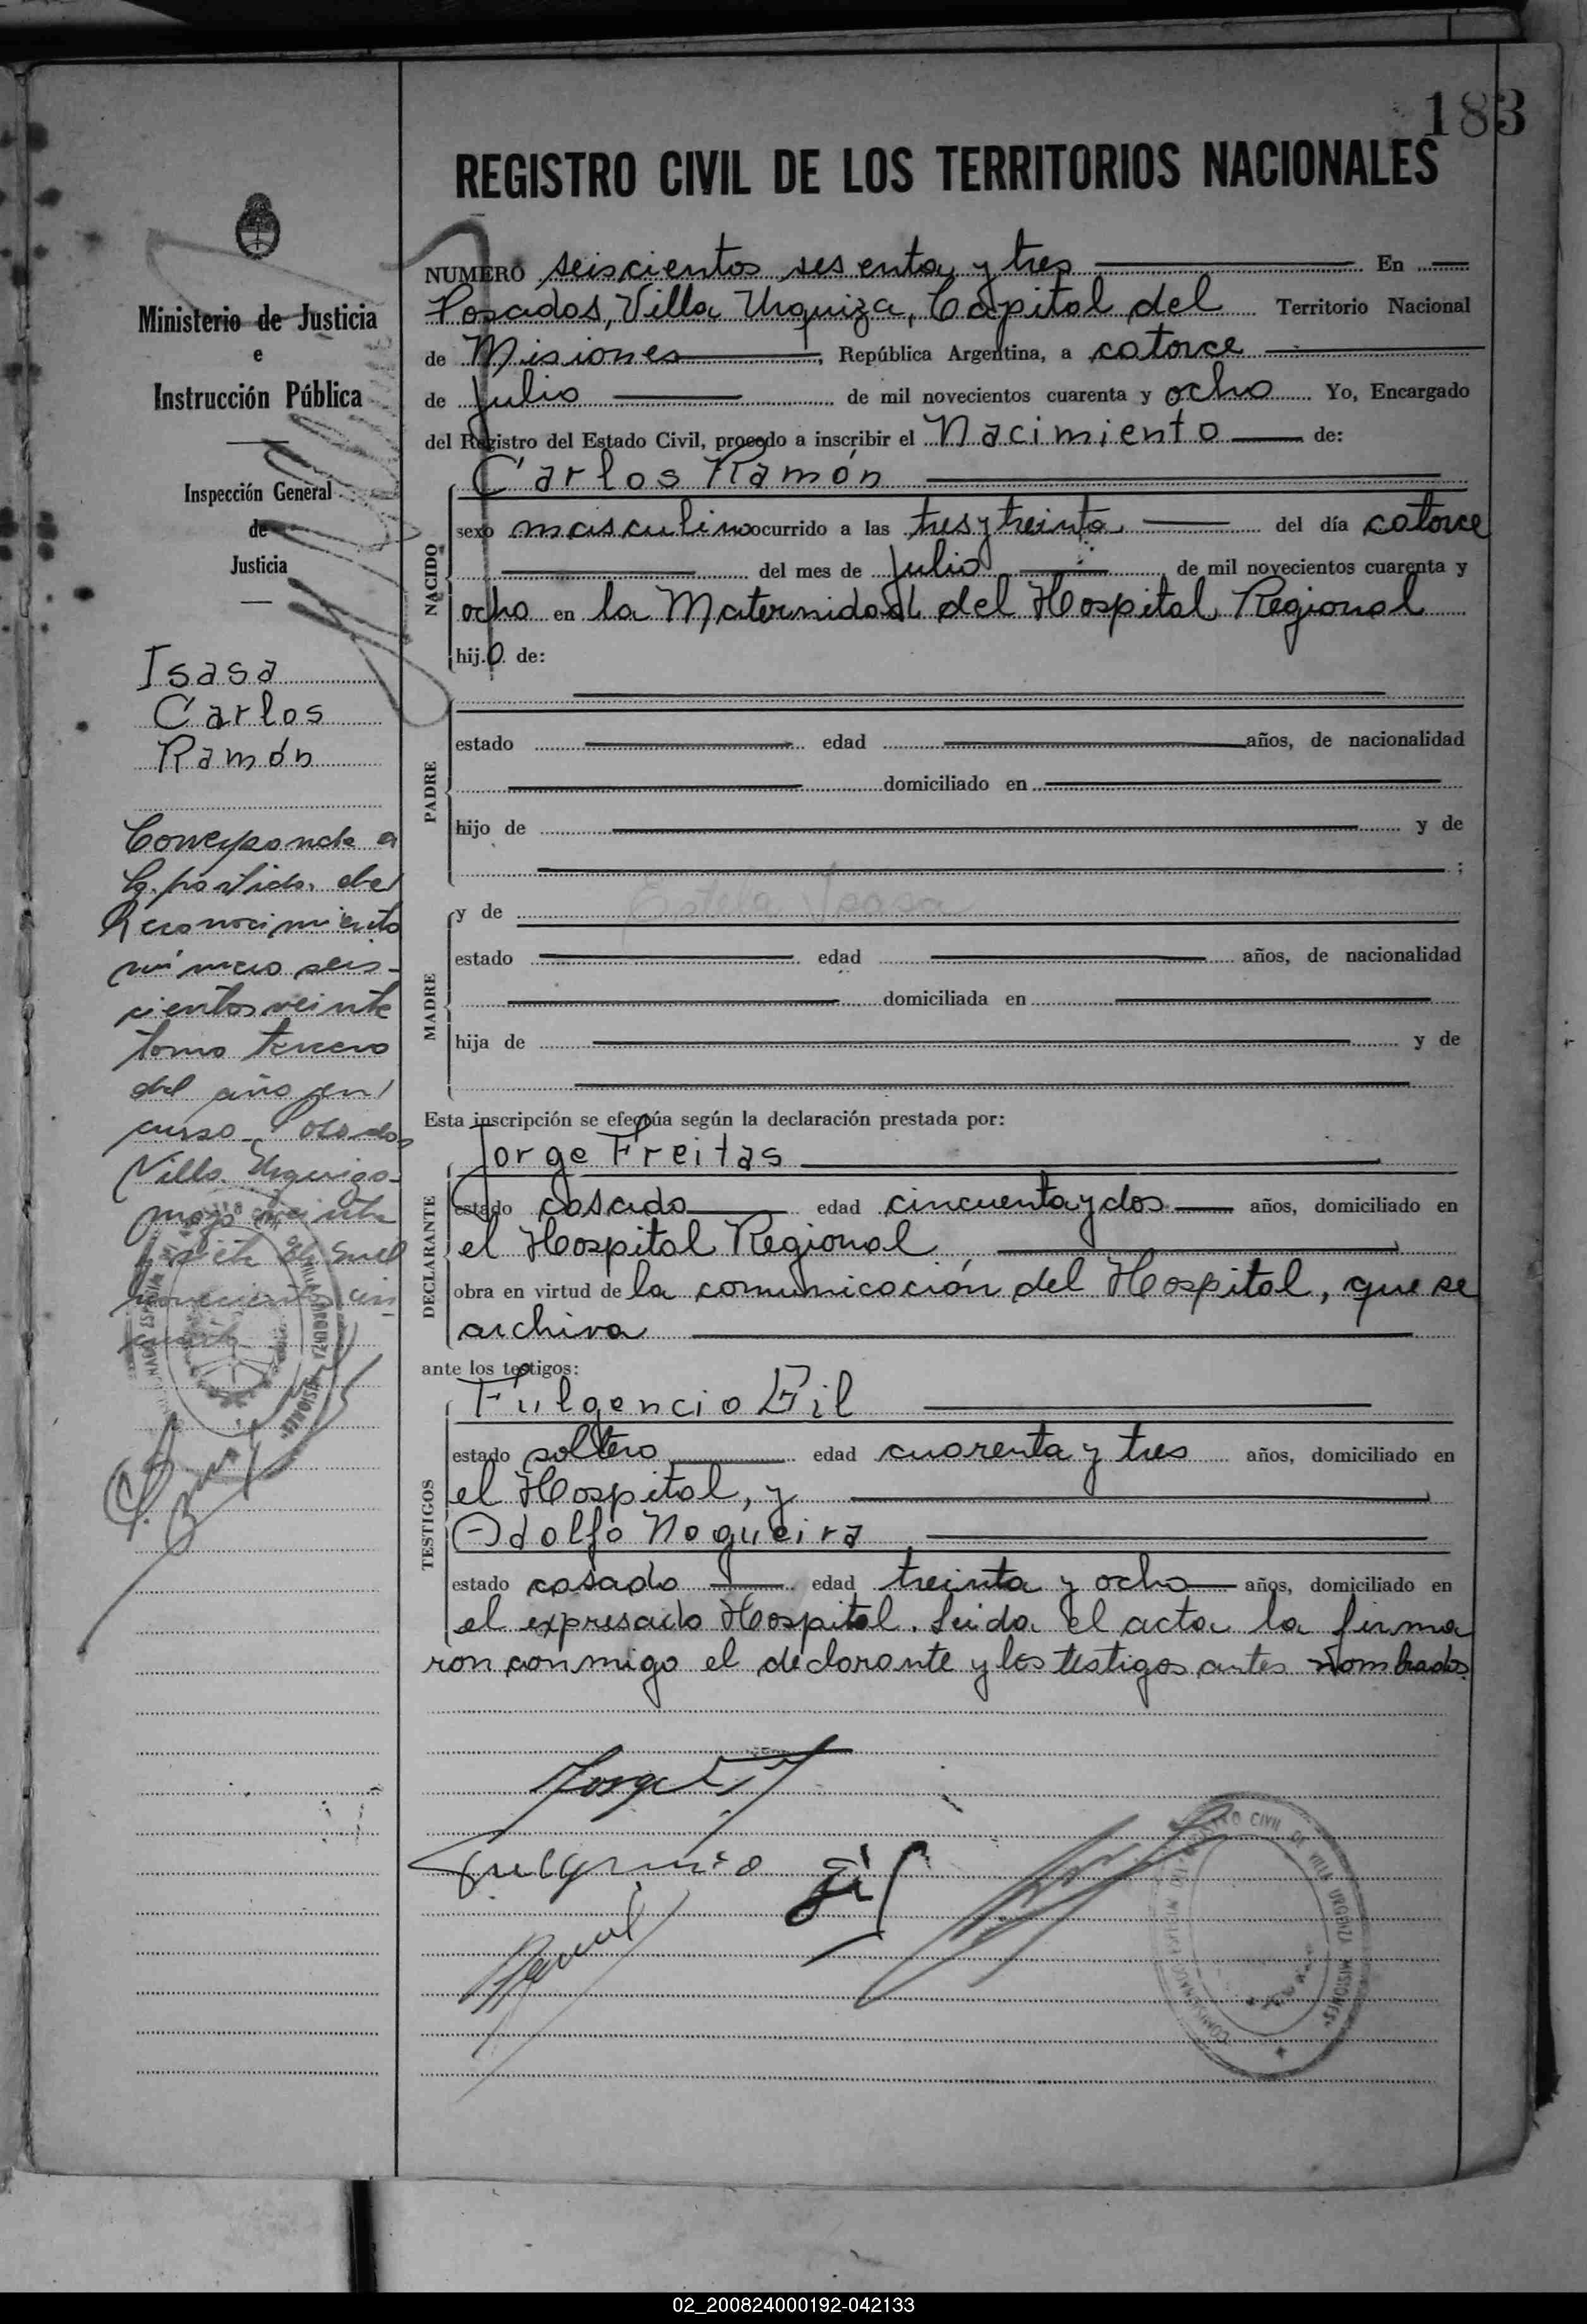 183
REGISTRO CIVIL DE LOS TERRITORIOS NACIONALES
Ministerio de Justicia
e
Instrucción Pública
Inspección General
de
Justicia
Isasa
Carlos
Ramón
Corresponde a
la partida de
Reconocimiento
número seis-
cientos veinte
tomo tercero
del año en
curso - Posadas
Villa Urquiza
mayo veinte
y siete de mil
novecientos cin
cuenta
NUMERO seiscientos sesenta y tres En
Posadas, Villa Urquiza, Capital del Territorio Nacional
de Misiones, República Argentina, a catorce
de Julio de mil novecientos cuarenta y ocho Yo, Encargado
del Registro del Estado Civil, procedo a inscribir el Nacimiento de:
NACIDO
Carlos Ramón
sexo masculino ocurrido a las tres y treinta del día catorce
del mes de Julio de mil novecientos cuarenta y
ocho en la Maternidad del Hospital Regional
hijo de:
PADRE
estado edad años, de nacionalidad
domiciliado en
hijo de y de
;
MADRE
y de Estela Isasa
estado edad años, de nacionalidad
domiciliada en
hija de y de
Esta inscripción se efectúa según la declaración prestada por:
DECLARANTE
Jorge Freitas
estado casado edad cincuenta y dos años, domiciliado en
el Hospital Regional
obra en virtud de la comunicación del Hospital, que se
archiva
ante los testigos:
TESTIGOS
Fulgencio Gil
estado soltero edad cuarenta y tres años, domiciliado en
el Hospital, y
Adolfo Nogueira
estado casado edad treinta y ocho años, domiciliado en
el expresado Hospital. Leida el acta la firma
ron conmigo el declarante y los testigos antes nombrados.
Jorge
Fulgencio Gil
REGISTRO CIVIL DE VILLA URQUIZA MISIONES
02_200824000192-042133